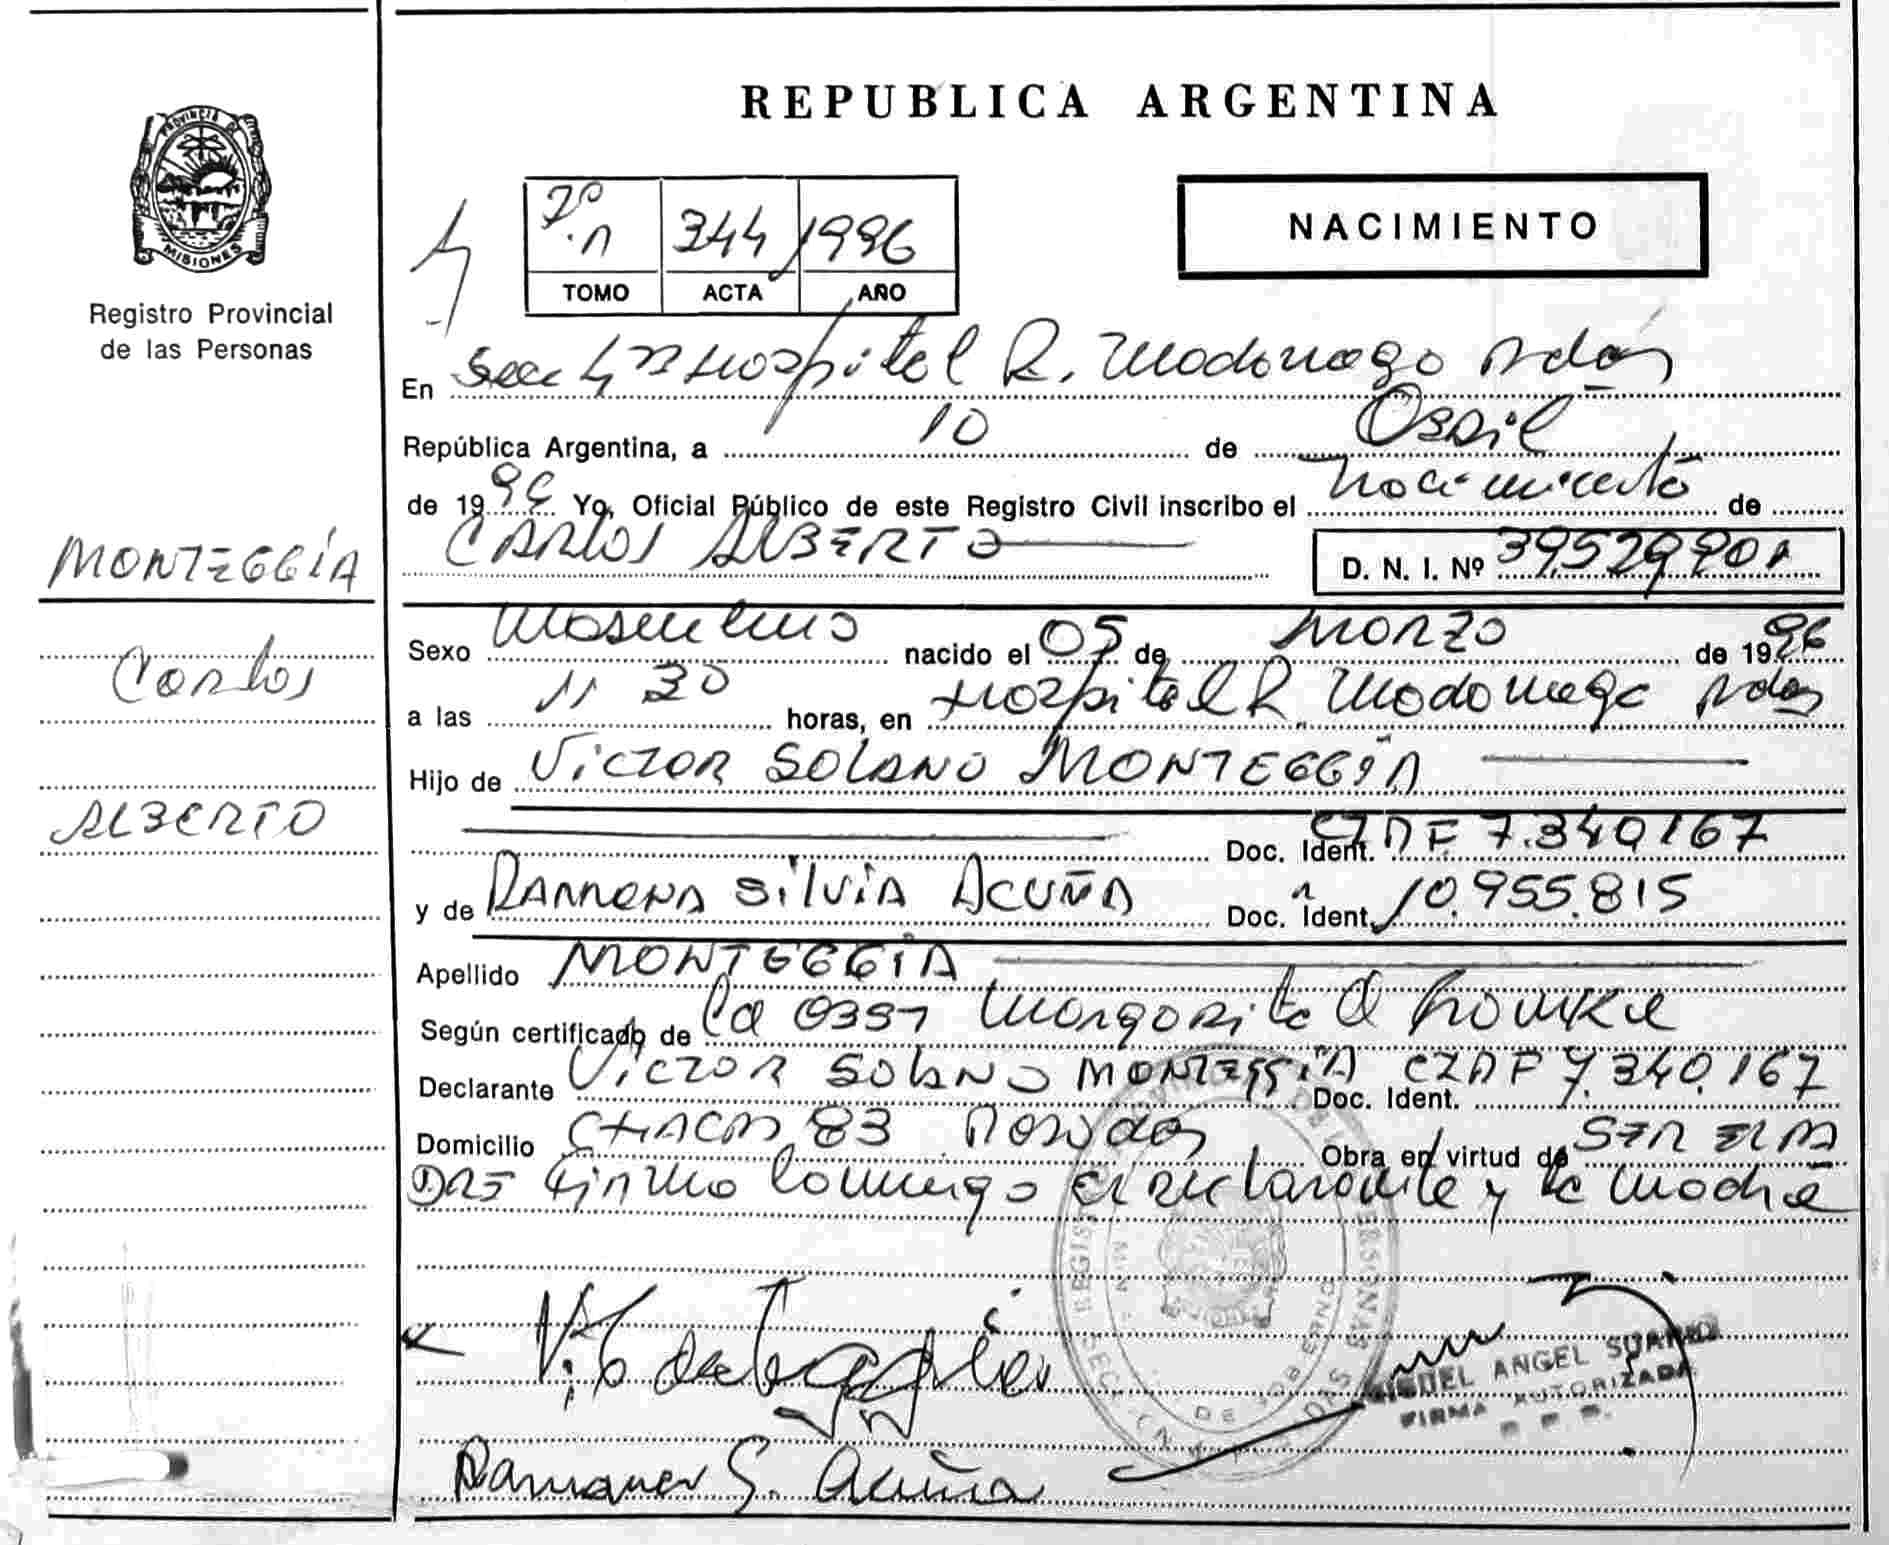 PROVINCIA DE
MISIONES
Registro Provincial
de las Personas
MONTEGGÍA
Carlos
ALBERTO
REPUBLICA ARGENTINA
344 1996
TOMO ACTA AÑO
NACIMIENTO
En Secc 4ª Hospital R. Madariaga Pdas
República Argentina, a 10 de Abril
de 1996 Yo, Oficial Público de este Registro Civil inscribo el nacimiento de
CARLOS ALBERTO
D. N. I. Nº 39.529.901
Sexo Masculino nacido el 05 de Marzo de 1996
a las 11 30 horas, en Hospital R. Madariaga Pdas
Hijo de VICTOR SOLANO MONTEGGÍA
Doc. Ident. 7.340.167
y de RAMONA SILVIA ACUÑA Doc. Ident. 10.955.815
Apellido MONTEGGÍA
Según certificado de Margarita
Declarante VICTOR SOLANO MONTEGGIA Doc. Ident. 7.340.167
Domicilio CHACO 83 Posadas Obra en virtud de SER EL PA
DRE Firma conmigo el declarante y la madre
MIGUEL ANGEL SUAREZ
FIRMA AUTORIZADA
Ramona S. Acuña